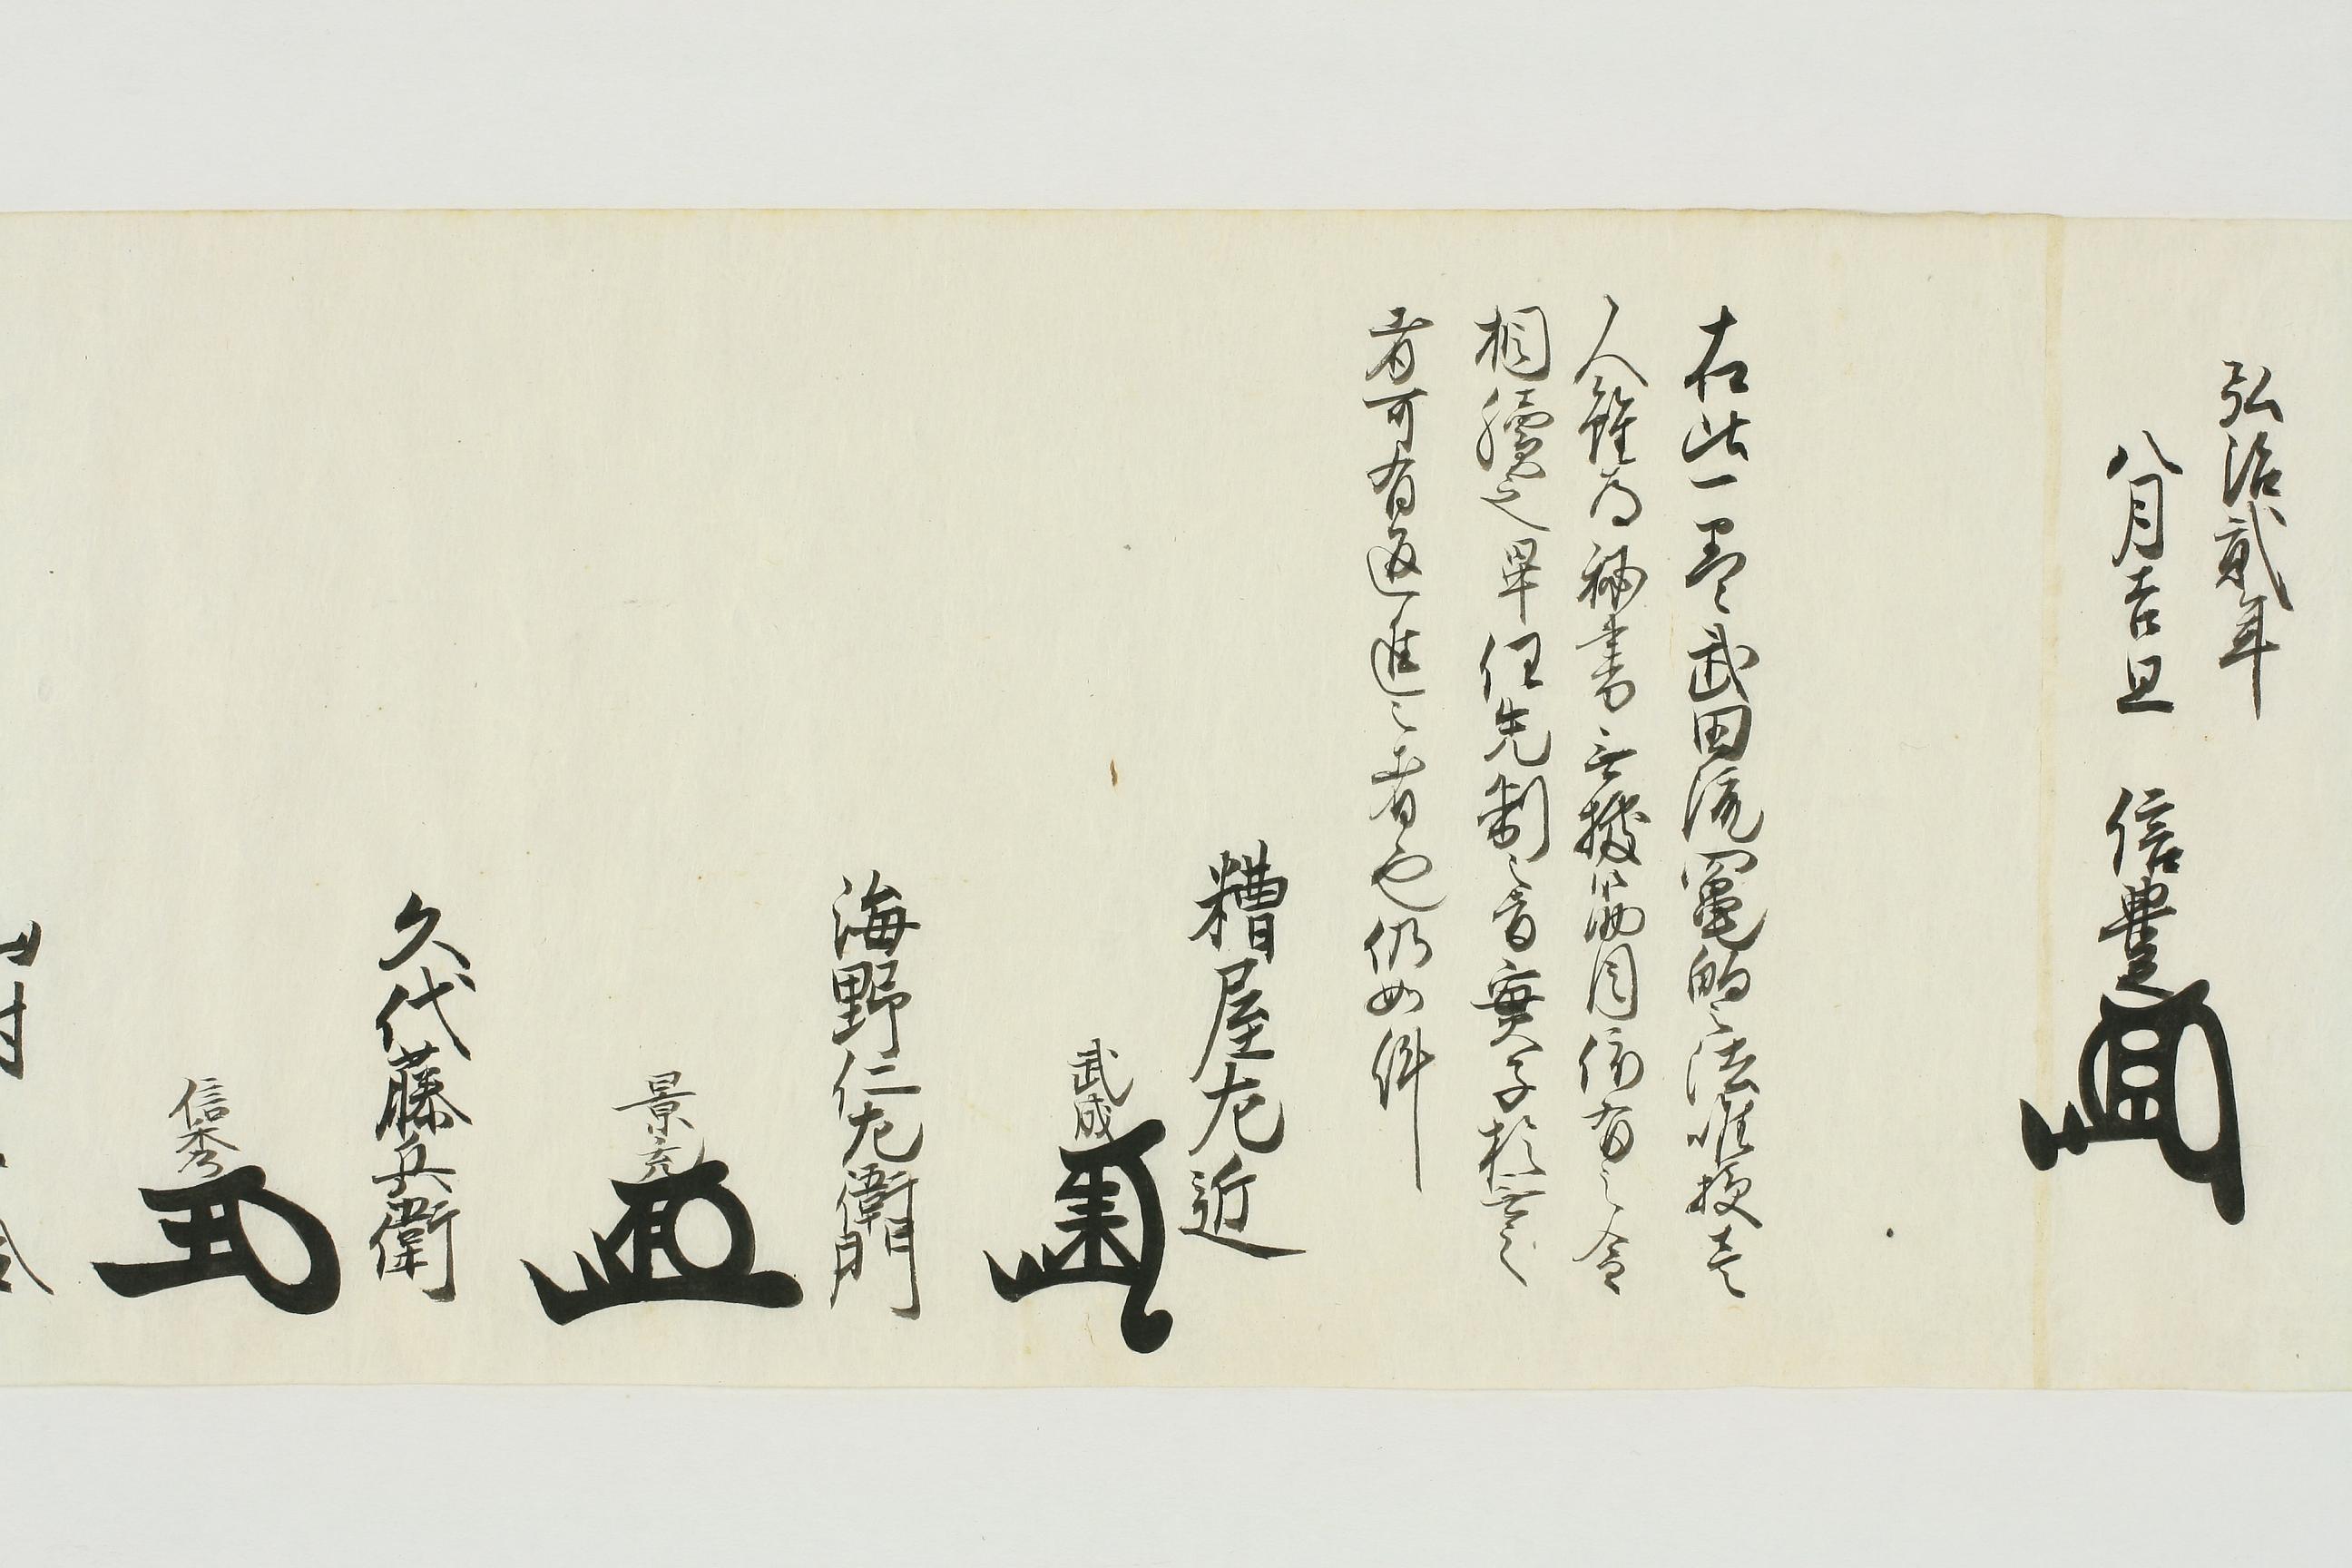 弘治貳年
八月吉旦　信豊
右此一巻武田流罵的之法唯授壱
人雖為秘書無據筋目依有之令
相續之畢任先制之旨実子於無之
者可有返進之者也仍如件
糟屋左近
武成
海野仁左衛門
景充
久代藤兵衛
信秀